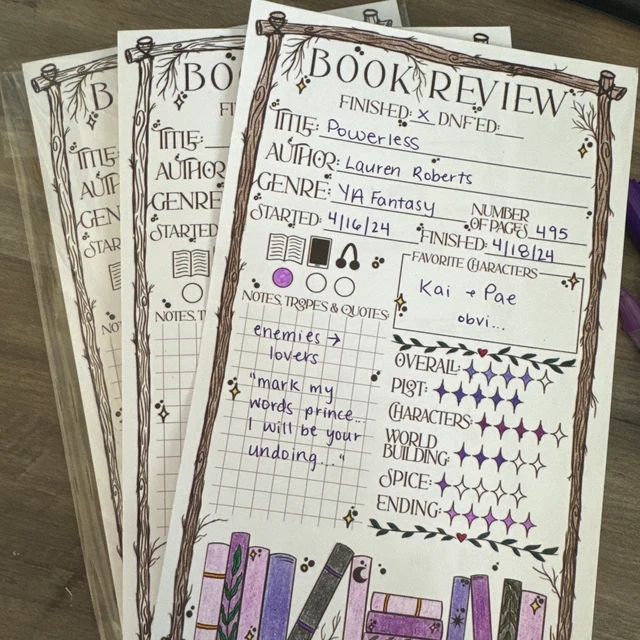 BOOK REVIEW
FINISHED: X DNF'ED:
TITLE: Powerless
AUTHOR: Lauren Roberts
GENRE: YA Fantasy
NUMBER OF PAGES 495
STARTED: 4/16/24 FINISHED: 4/18/24
FAVORITE CHARACTERS
Kai + Pae
obvi...
NOTES, TROPES & QUOTES:
enemies →
lovers
"mark my
words prince...
I will be your
undoing..."
OVERALL:
PLOT:
CHARACTERS:
WORLD
BUILDING:
SPICE:
ENDING:
BO
FI
TITLE:
AUTHOR
GENRE
STARTED
NOTES, T
B
TITLE
AUT
GEN
STAR
NO